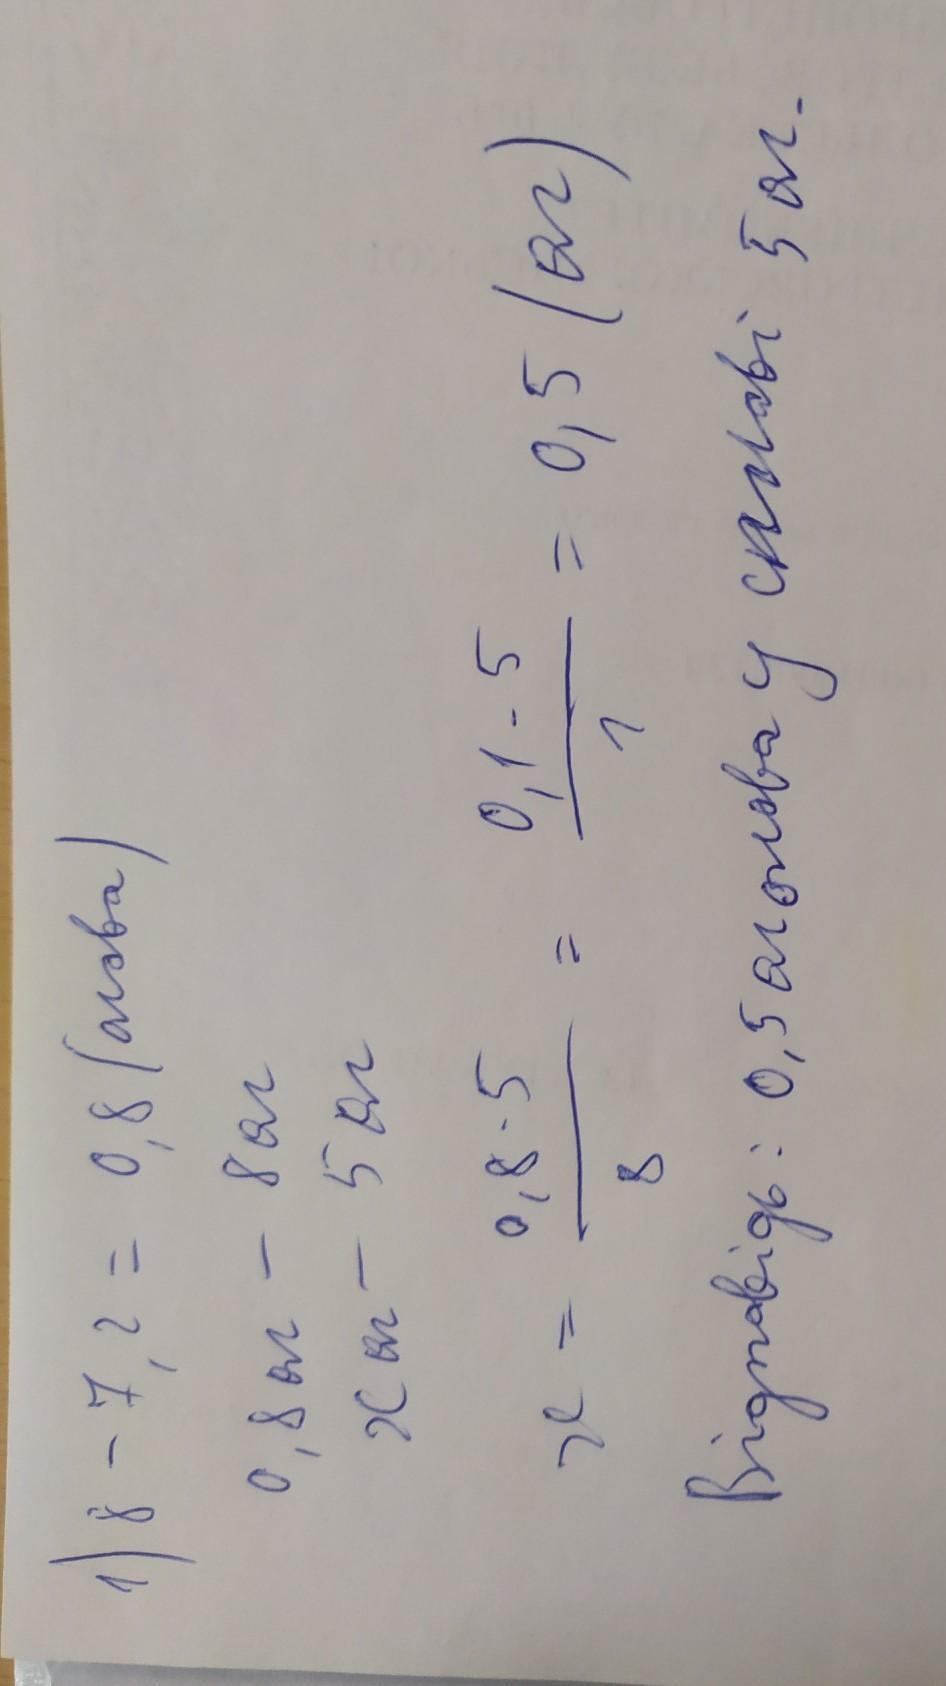 1) 8 - 7,2 = 0,8 (олова)
0,8 кг - 8 кг
x кг - 5 кг
x = 0,8 · 5 / 8 = 0,1 · 5 / 1 = 0,5 (кг)
Відповідь: 0,5 кг олова у сплаві 5 кг.